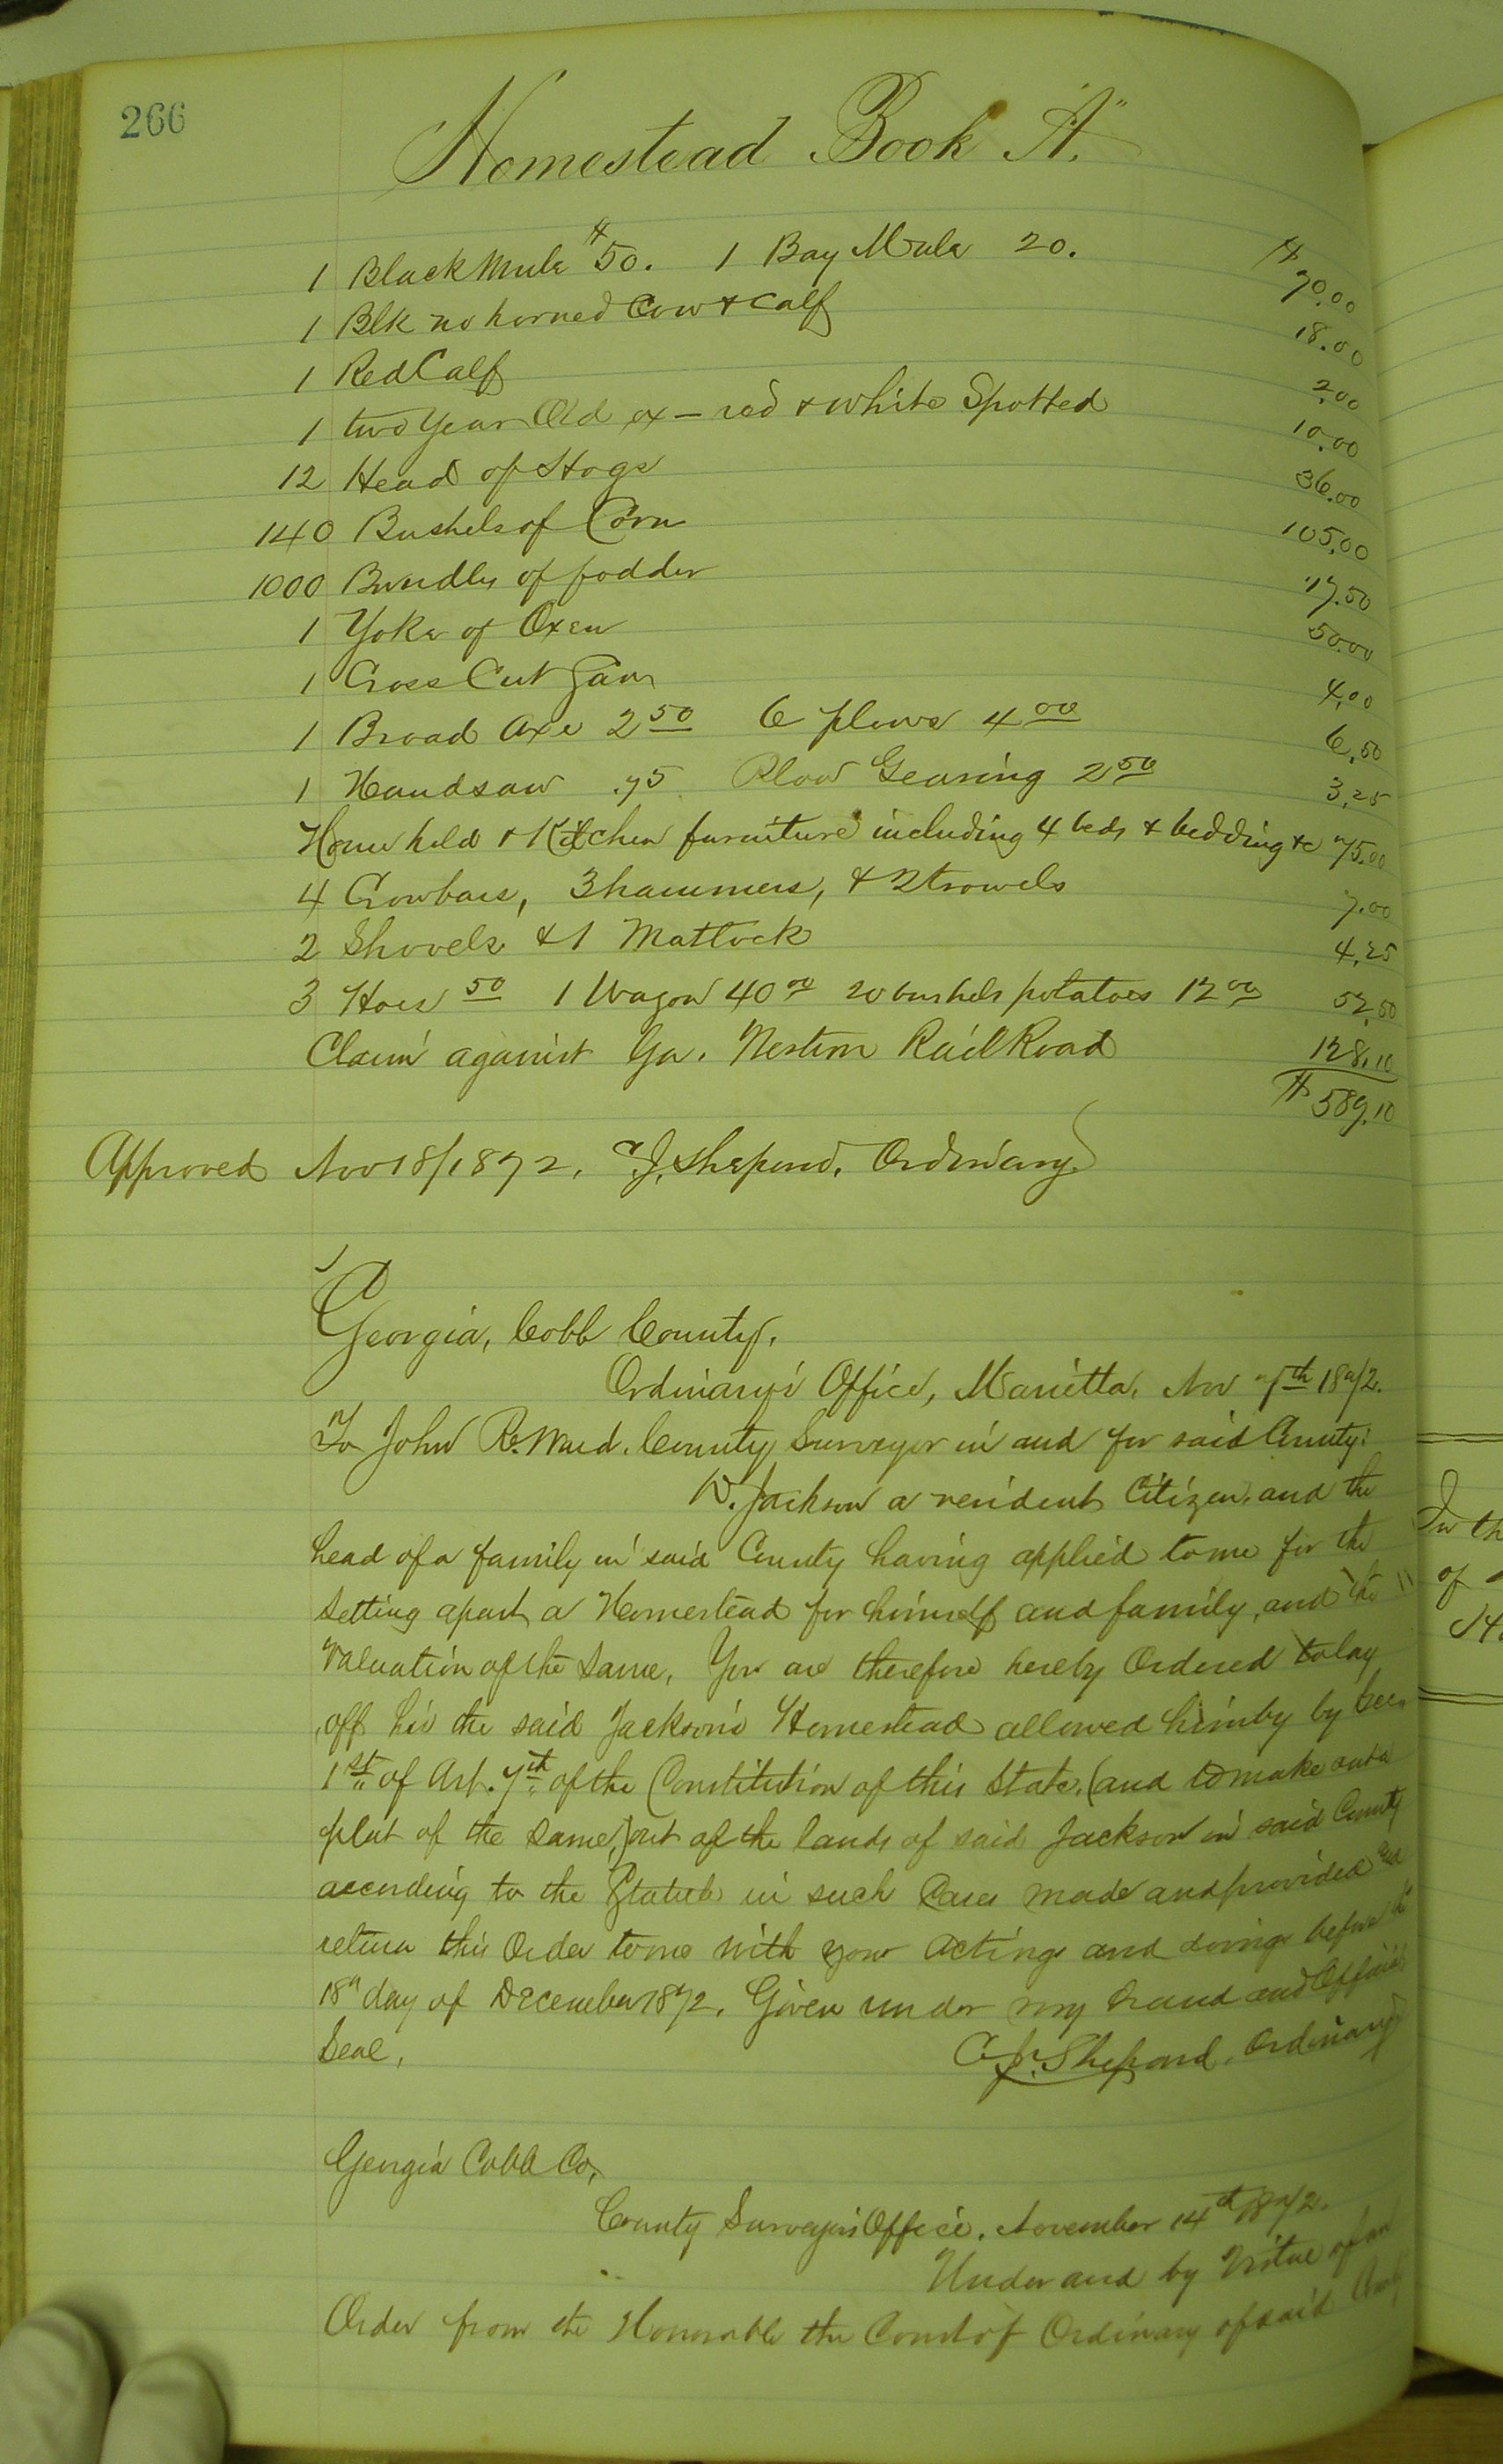 266
Homestead Book "A."
1 Black Mule $50. 1 Bay Mule 20. $70.00
1 Blk no horned Cow & Calf 18.00
1 Red Calf 2.00
1 two Year Old ox – red & white Spotted 10.00
12 Head of Hogs 36.00
140 Bushels of Corn 105.00
1000 Bundles of fodder 17.50
1 Yoke of Oxen 50.00
1 Cross Cut Saw 4.00
1 Broad Axe 2 50 6 plows 4 00 6.50
1 Handsaw .75 Plow Gearing 2 50 3.25
House hold & Kitchen furniture including 4 beds & bedding &c 75.00
4 Crowbars, 3 hammers, & 2 trowels 7.00
2 Shovels & 1 Mattock 4.25
3 Hoes 50 1 Wagon 40 00 20 bushels potatoes 12 00 52.50
Claim against Ga. Western Rail Road 128.10
$589.10
Approved Nov 18/1872. C.J. Shepard, Ordinary
Georgia, Cobb County.
Ordinary's Office, Marietta, Nov 7th 1872.
To John R. Ward, County Surveyor in and for said County:
D. Jackson a resident Citizen, and the
head of a family in said County having applied to me for the
Setting apart a Homestead for himself and family, and the
Valuation of the Same, You are therefore hereby Ordered to lay
off his the said Jackson's Homestead allowed him by by Sec.
1st of Art. 7th of the Constitution of this State, (and to make out a
plat of the Same,) out of the lands of said Jackson in said County
according to the Statute in such Cases made and provided and
return this Order to me with your Actings and doings before the
18th day of December 1872. Given under my hand and Official
Seal. C.J. Shepard, Ordinary
Georgia Cobb Co,
County Surveyor's Office, November 14th 1872.
Under and by Virtue of an
Order from the Honorable the Court of Ordinary of said County
In th
of